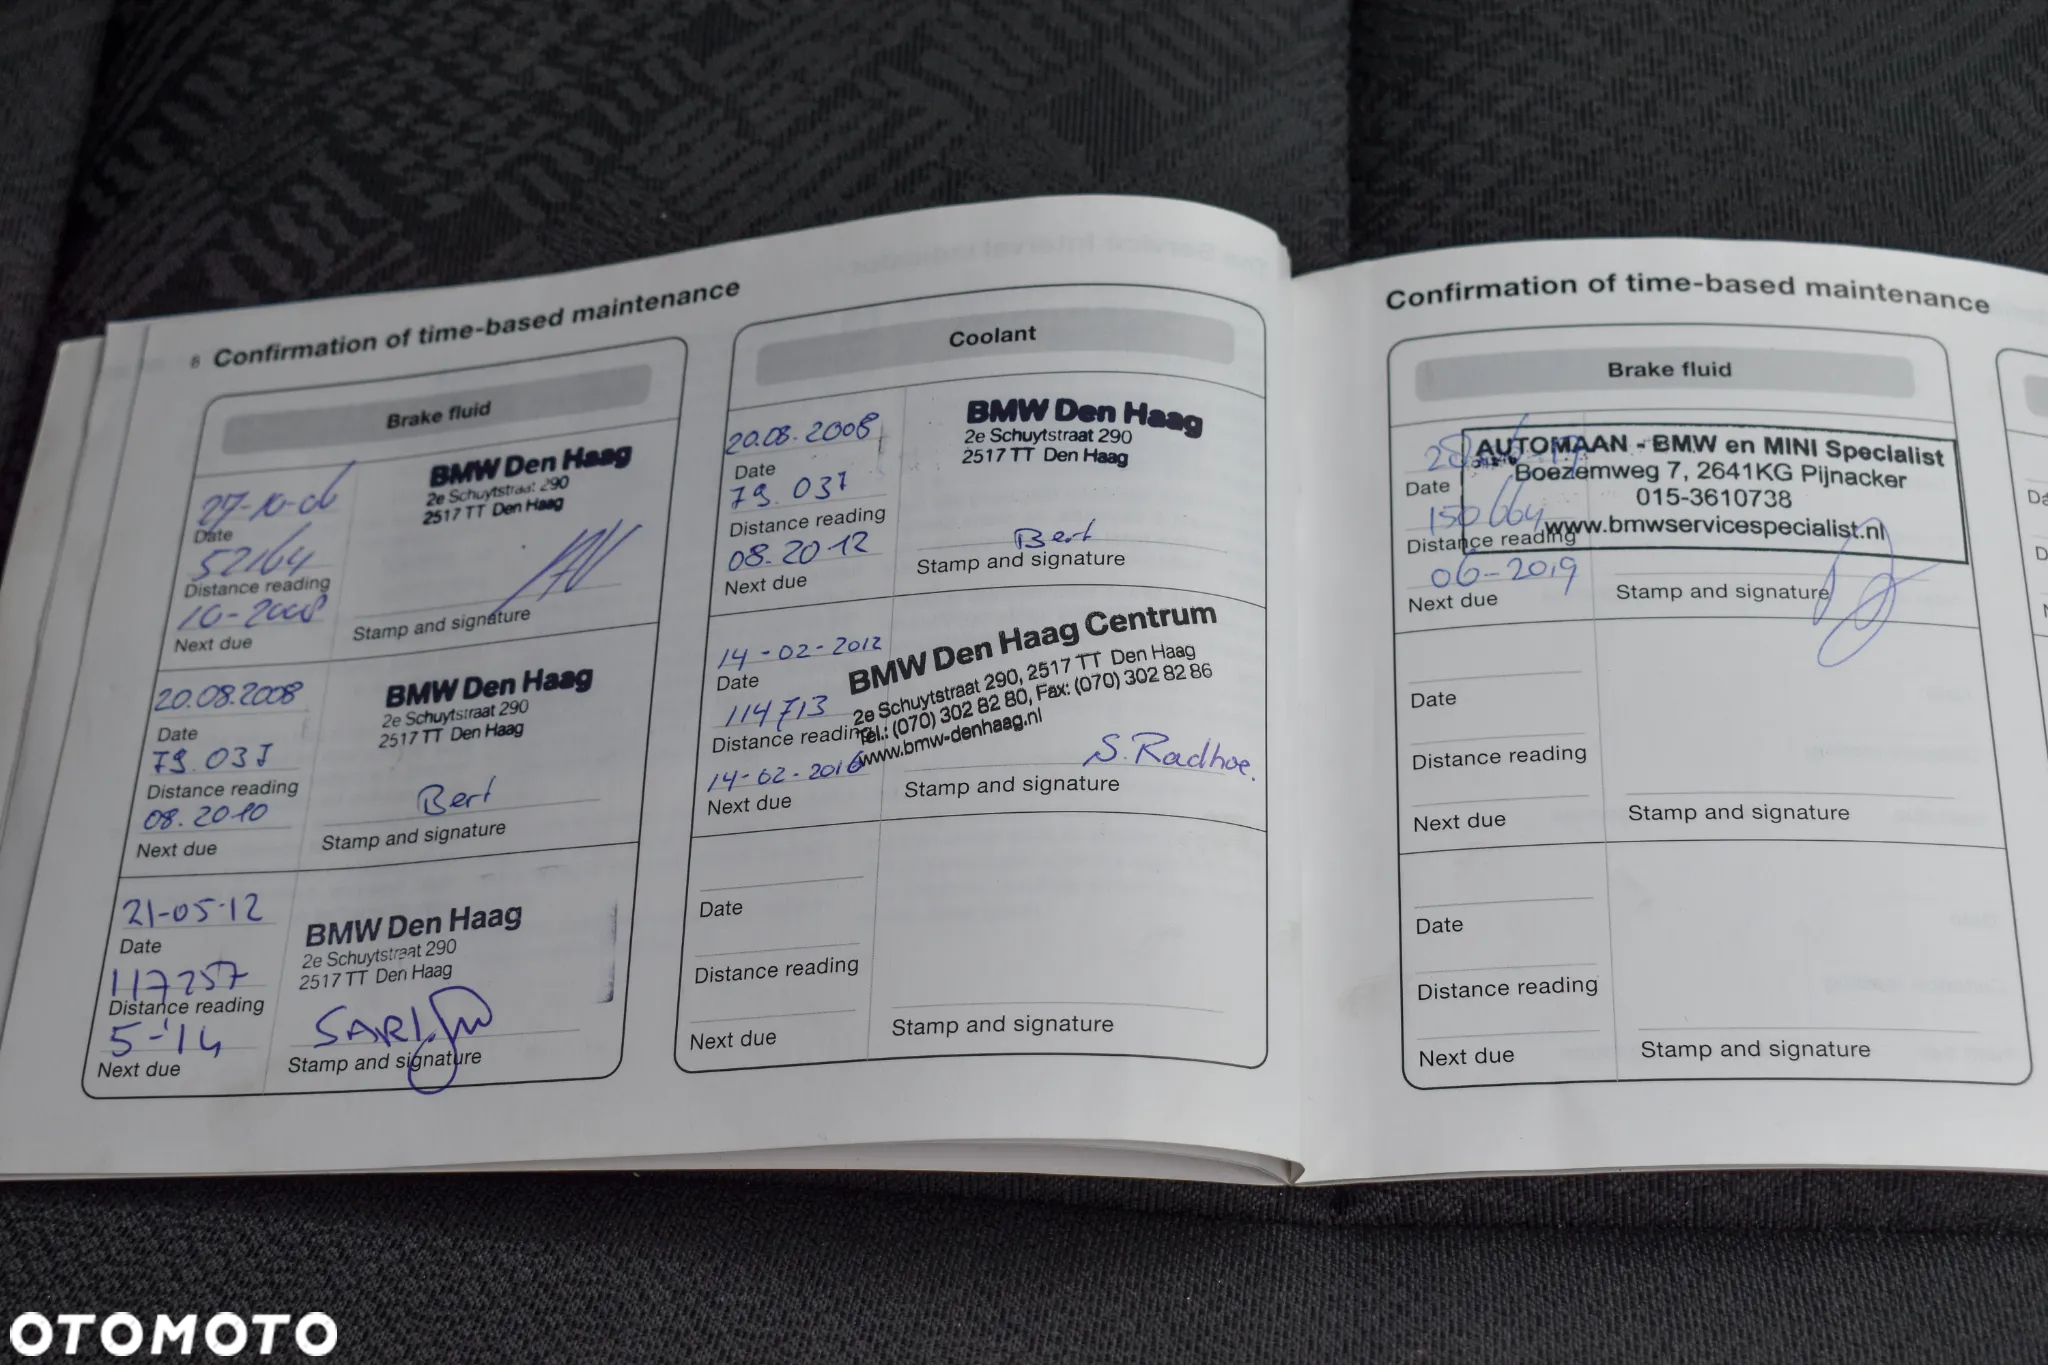 8 Confirmation of time-based maintenance
Brake fluid
27-10-06
Date
52164
Distance reading
10-2008
Next due
BMW Den Haag
2e Schuytstraat 290
2517 TT Den Haag
Stamp and signature
20.08.2008
Date
79.037
Distance reading
08.2010
Next due
BMW Den Haag
2e Schuytstraat 290
2517 TT Den Haag
Bert
Stamp and signature
21-05-12
Date
117257
Distance reading
5-'14
Next due
BMW Den Haag
2e Schuytstraat 290
2517 TT Den Haag
Stamp and signature
Coolant
20.08.2008
Date
79.037
Distance reading
08.2012
Next due
BMW Den Haag
2e Schuytstraat 290
2517 TT Den Haag
Bert
Stamp and signature
14-02-2012
Date
114713
Distance reading
14-02-2016
Next due
BMW Den Haag Centrum
2e Schuytstraat 290, 2517 TT Den Haag
Tel.: (070) 302 82 80, Fax: (070) 302 82 86
www.bmw-denhaag.nl
S. Radhoe.
Stamp and signature
Date
Distance reading
Next due
Stamp and signature
Confirmation of time-based maintenance
Brake fluid
Date
150664
Distance reading
06-2019
Next due
AUTOMAAN - BMW en MINI Specialist
Boezemweg 7, 2641KG Pijnacker
015-3610738
www.bmwservicespecialist.nl
Stamp and signature
Date
Distance reading
Next due
Stamp and signature
Date
Distance reading
Next due
Stamp and signature
OTOMOTO